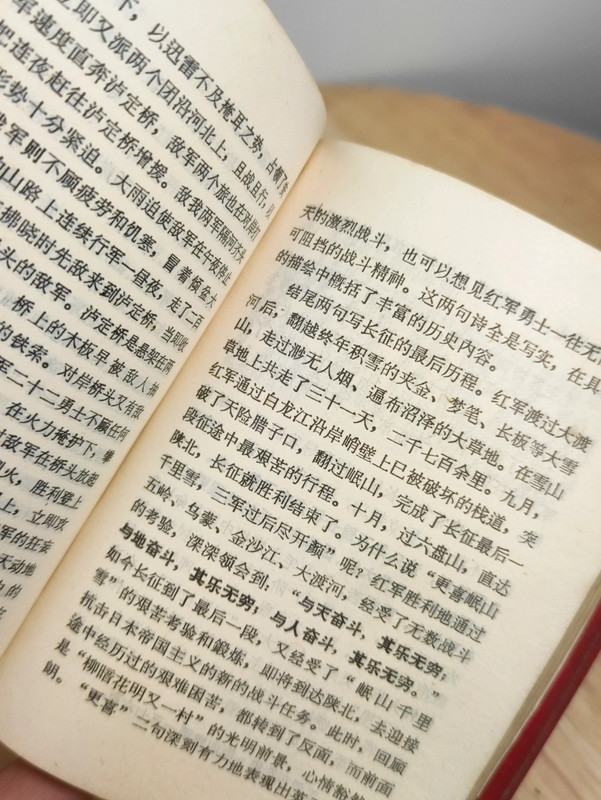 下，以迅雷不及掩耳之势，占领
立即又派两个团沿河北上，且战且行，以
军速度直奔泸定桥，敌军两个旅也在对岸
把连夜赶往泸定桥增援。敌我两军隔河齐头
形势十分紧迫。大雨迫使敌军在午夜停止
我军则不顾疲劳和饥寒，冒着倾盆大
山路上连续行军一昼夜，走了二百
拂晓时先敌来到泸定桥，当即收
头的敌军。泸定桥是悬架在两
桥上的木板早被敌人拆
的铁索。对岸桥头又有敌
军二十二勇士不顾任何
在火力掩护下，攀
敌军在桥头放起
火，胜利登上
上，立即攻
军的狂妄
天动地
中的
天的激烈战斗，也可以想见红军勇士一往无
可阻挡的战斗精神。这两句诗全是写实，在具
的描绘中概括了丰富的历史内容。
结尾两句写长征的最后历程。红军渡过大渡
河后，翻越终年积雪的夹金、梦笔、长板等大雪
山，走过渺无人烟、遍布沼泽的大草地。在雪山
草地上共走了三十一天，二千七百余里。九月，
红军通过白龙江沿岸峭壁上已被破坏的栈道，突
破了天险腊子口，翻过岷山，完成了长征最后一
段征途中最艰苦的行程。十月，过六盘山，直达
陕北，长征就胜利结束了。为什么说“更喜岷山
千里雪，三军过后尽开颜”呢？红军胜利地通过
五岭、乌蒙、金沙江、大渡河，经受了无数战斗
的考验，深深领会到：“与天奋斗，其乐无穷；
与地奋斗，其乐无穷；与人奋斗，其乐无穷。”
如今长征到了最后一段，又经受了“岷山千里
雪”的艰苦考验和锻炼，即将到达陕北，去迎接
抗击日本帝国主义的新的战斗任务。此时，回顾
途中经历过的艰难困苦，都转到了反面，而前面
是“柳暗花明又一村”的光明前景，心情豁然
朗。“更喜”二句深刻有力地表现出